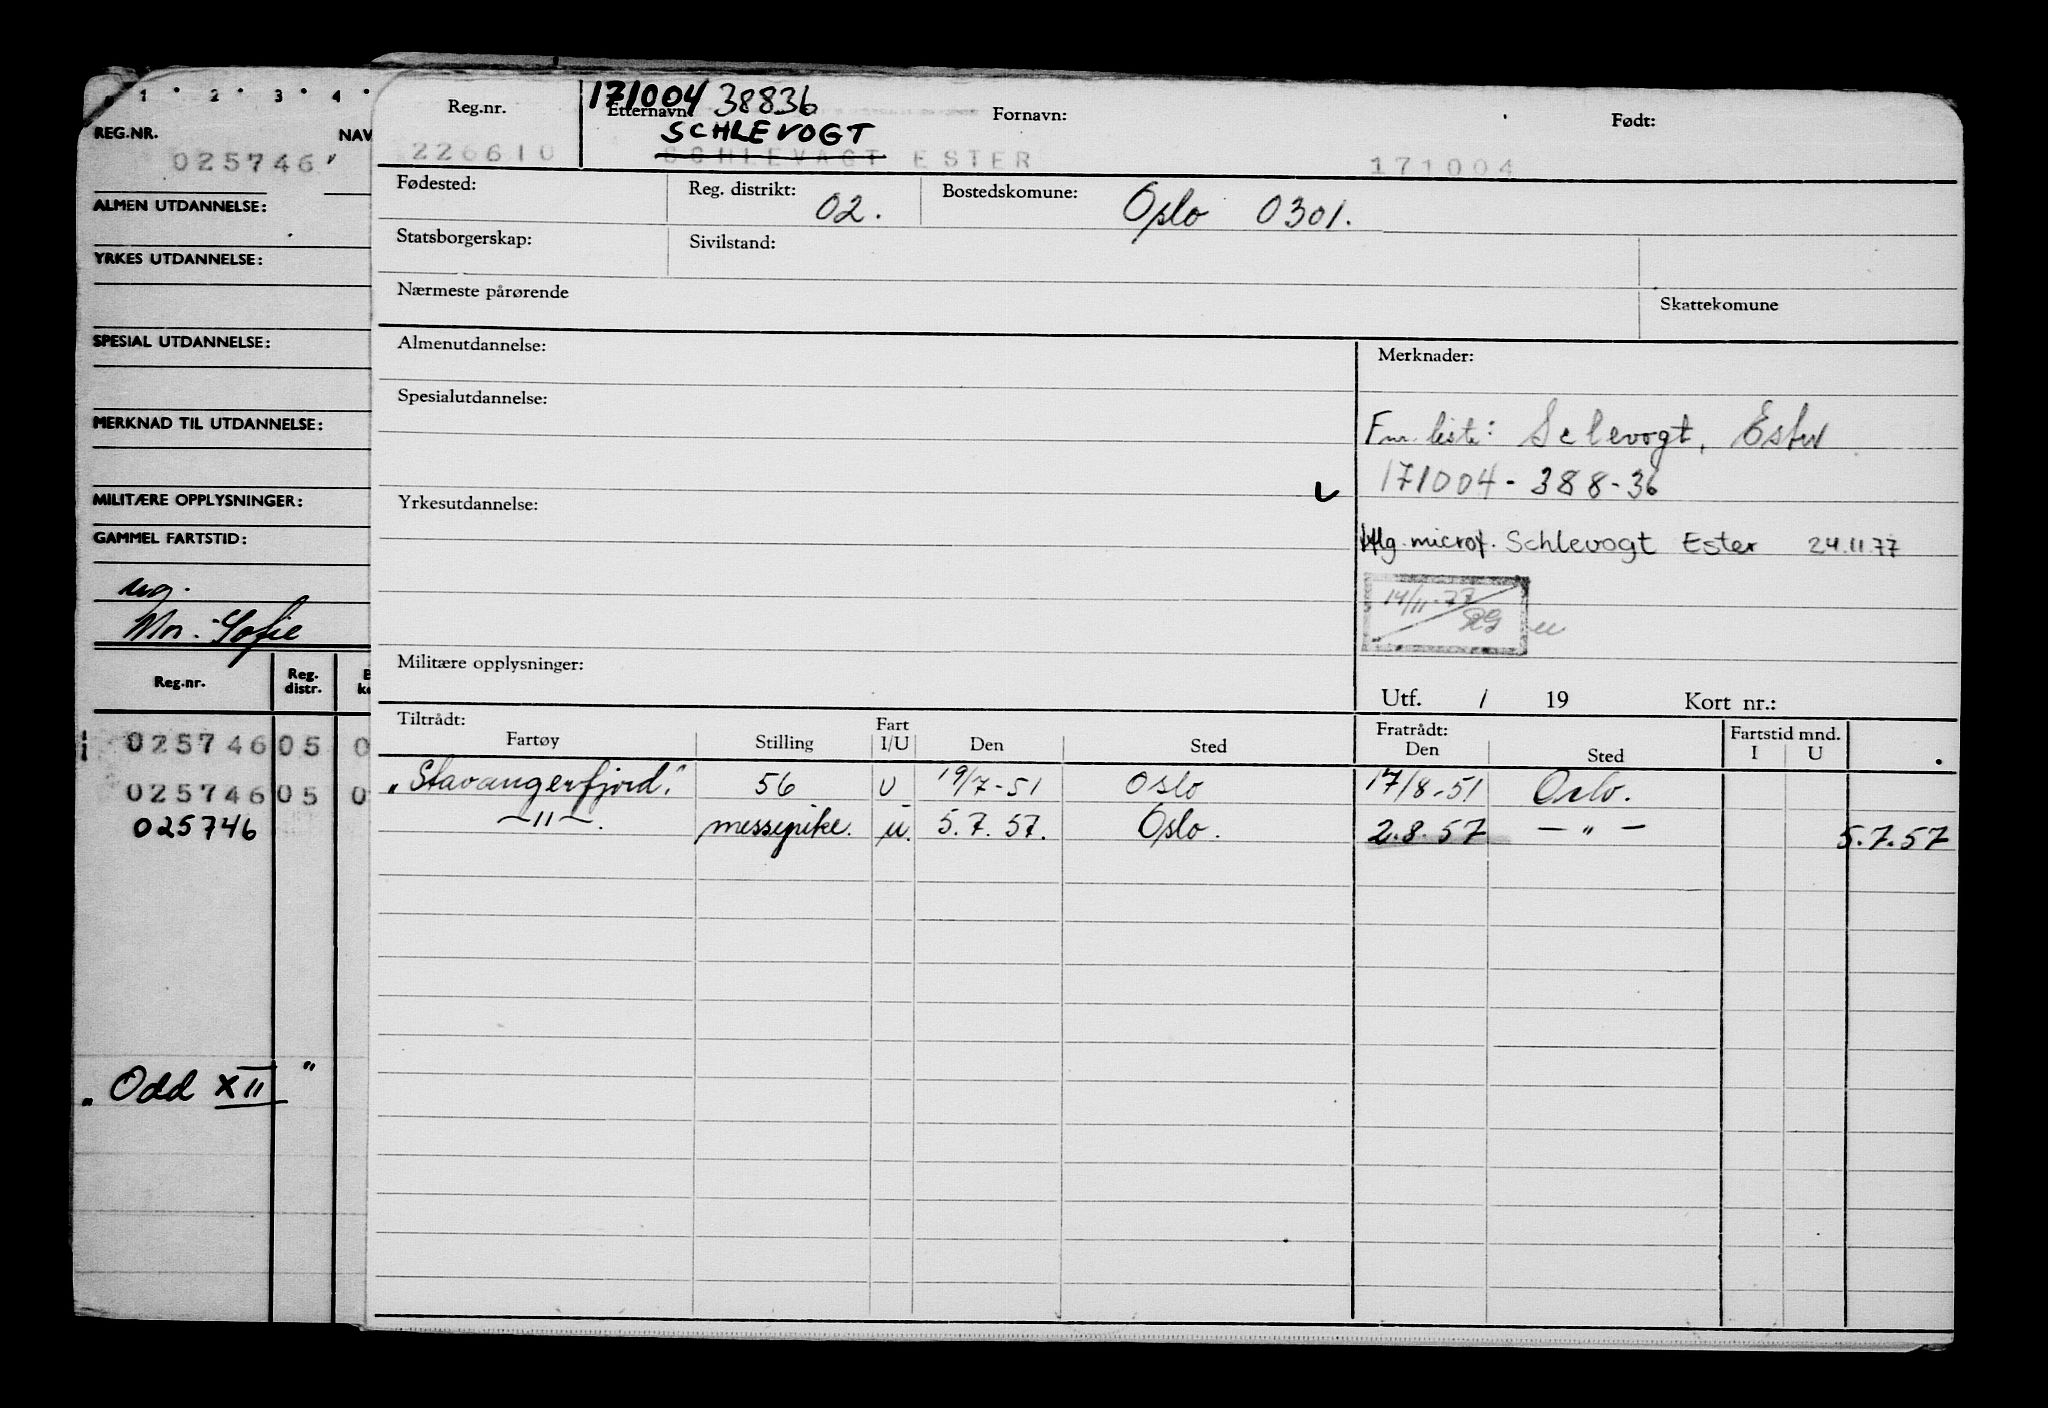 1 2 3 4
REG.NR. NAV
025746
ALMEN UTDANNELSE:
YRKES UTDANNELSE:
SPESIAL UTDANNELSE:
MERKNAD TIL UTDANNELSE:
MILITÆRE OPPLYSNINGER:
GAMMEL FARTSTID:
Sofie
Reg.nr. Reg. distr.
025746 05 0
025746 05 0
025746
"Odd XII"
171004 38836
Reg.nr. Etternavn: Fornavn: Født:
SCHLEVOGT
226610 SCHLEVAGT ESTER 171004
Fødested: Reg. distrikt: 02. Bostedskomune: Oslo 0301.
Statsborgerskap: Sivilstand:
Nærmeste pårørende Skattekomune
Almenutdannelse: Merknader:
Spesialutdannelse:
Fnr. liste: Sclevogt, Ester
171004-388-36
Yrkesutdannelse:
iflg. microf. Schlevogt Ester 24.11.77
14/11-77
Militære opplysninger:
Utf. / 19 Kort nr.:
Tiltrådt: Fratrådt: Fartstid mnd.
Fartøy Stilling Fart I/U Den Sted Den Sted I U
"Stavangerfjord" 56 U 19/7-51 Oslo 17/8-51 Oslo.
—"—. messepike. u. 5.7.57. Oslo. 2.8.57 —"— 5.7.57